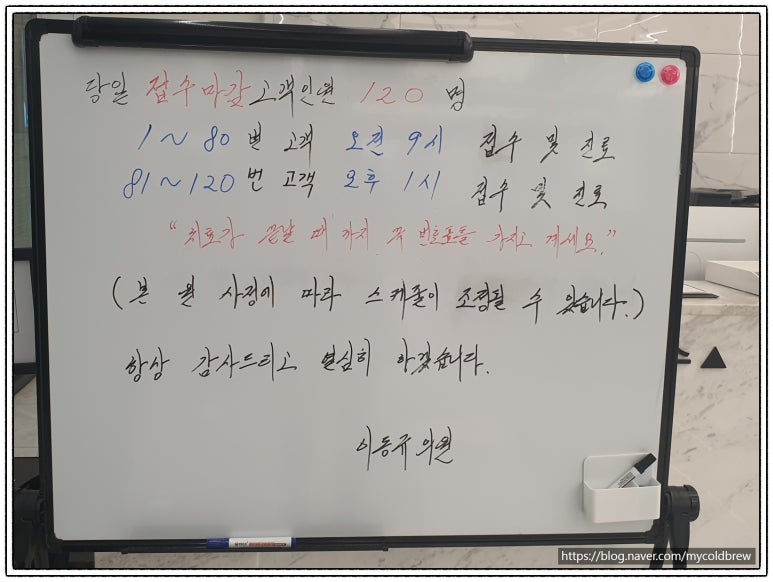 당일 접수마감 고객인원 120 명
1 ~ 80 번 고객 오전 9시 접수 및 진료
81 ~ 120 번 고객 오후 1시 접수 및 진료
“치료가 끝날 때 까지 꼭 번호표를 가지고 계세요.”
(본 원 사정에 따라 스케줄이 조정될 수 있습니다.)
항상 감사드리고 열심히 하겠습니다.
이동규의원
https://blog.naver.com/mycoldbrew